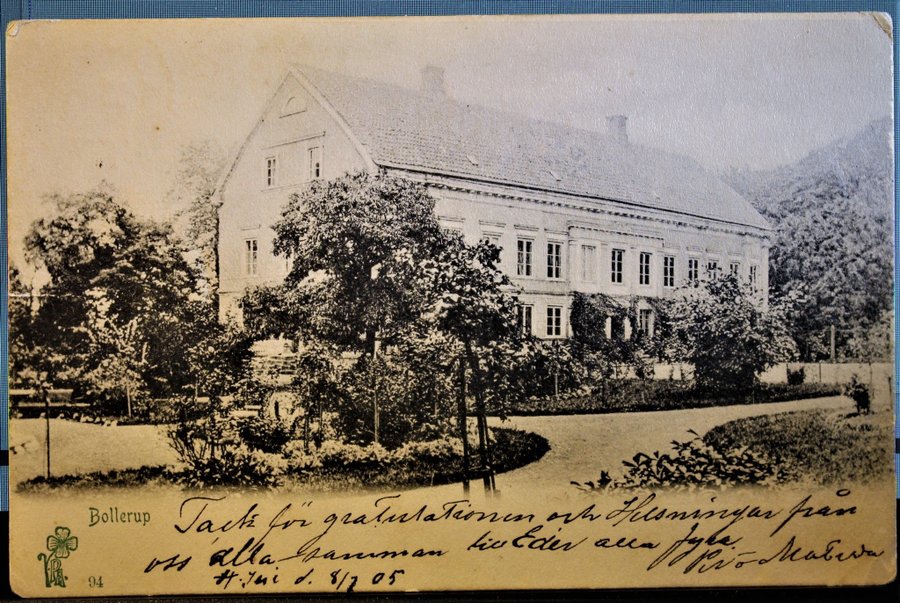 Bollerup
Tack för gratulationen och Helsningar från
oss alla samman till Eder alla fyra
d. 8/7 05
94